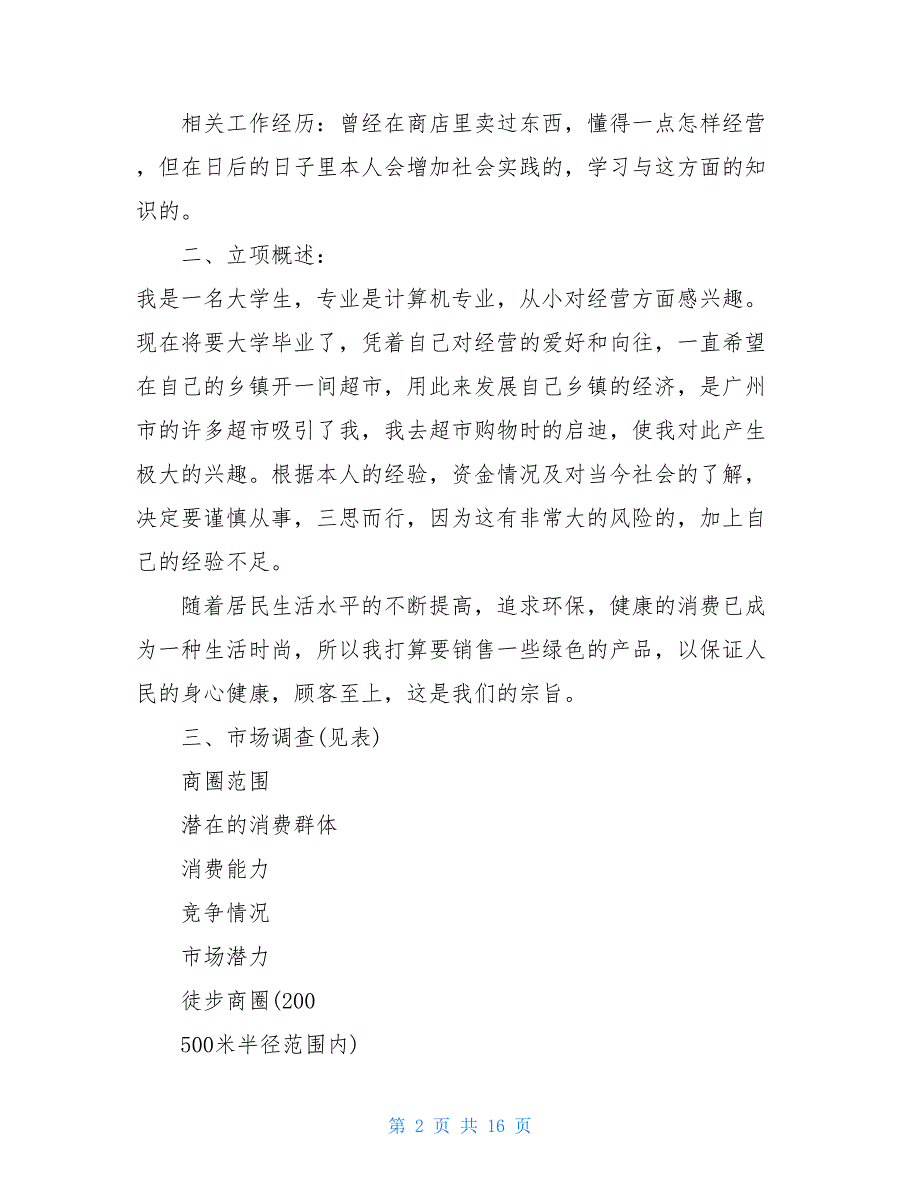 相关工作经历：曾经在商店里卖过东西，懂得一点怎样经营
，但在日后的日子里本人会增加社会实践的，学习与这方面的知
识的。
二、立项概述：
我是一名大学生，专业是计算机专业，从小对经营方面感兴趣。
现在将要大学毕业了，凭着自己对经营的爱好和向往，一直希望
在自己的乡镇开一间超市，用此来发展自己乡镇的经济，是广州
市的许多超市吸引了我，我去超市购物时的启迪，使我对此产生
极大的兴趣。根据本人的经验，资金情况及对当今社会的了解，
决定要谨慎从事，三思而行，因为这有非常大的风险的，加上自
己的经验不足。
随着居民生活水平的不断提高，追求环保，健康的消费已成
为一种生活时尚，所以我打算要销售一些绿色的产品，以保证人
民的身心健康，顾客至上，这是我们的宗旨。
三、市场调查(见表)
商圈范围
潜在的消费群体
消费能力
竞争情况
市场潜力
徒步商圈(200
500米半径范围内)
第 2 页 共 16 页